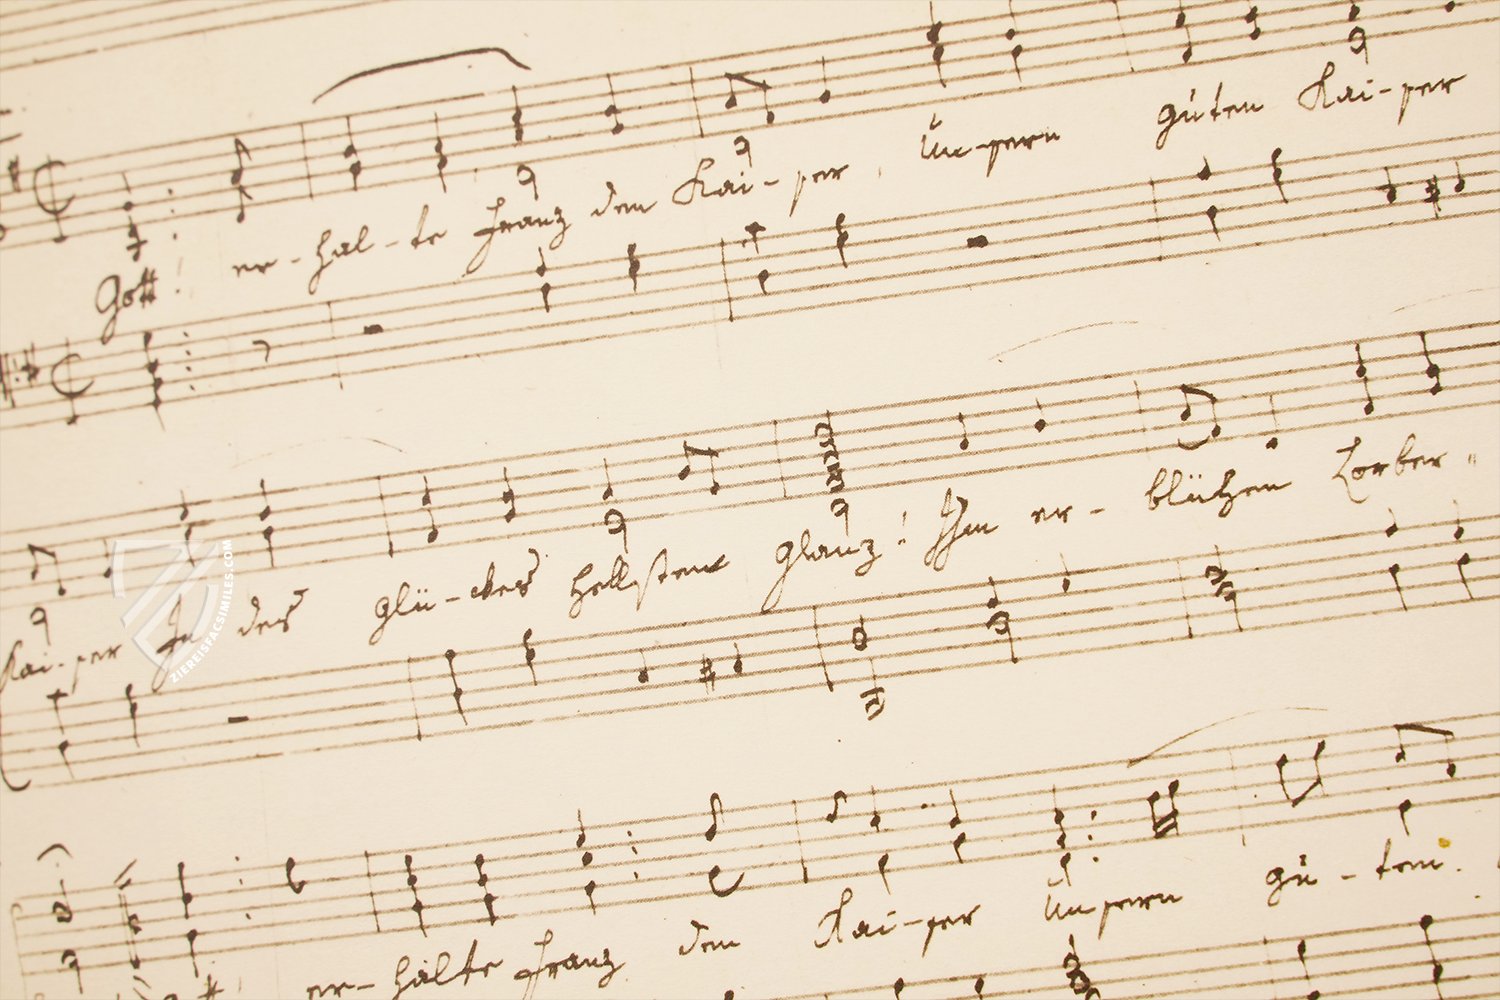 Gott! er-hal-te Franz den Kai-ser, Un-sern guten Kai-ser
Kai-ser In des Glü-ckes hellsten Glanz! Ihm er-blühen Lorber=
er-halte Franz den Kai-ser Un sern gu-ten
ZIEREISFACSIMILES.COM